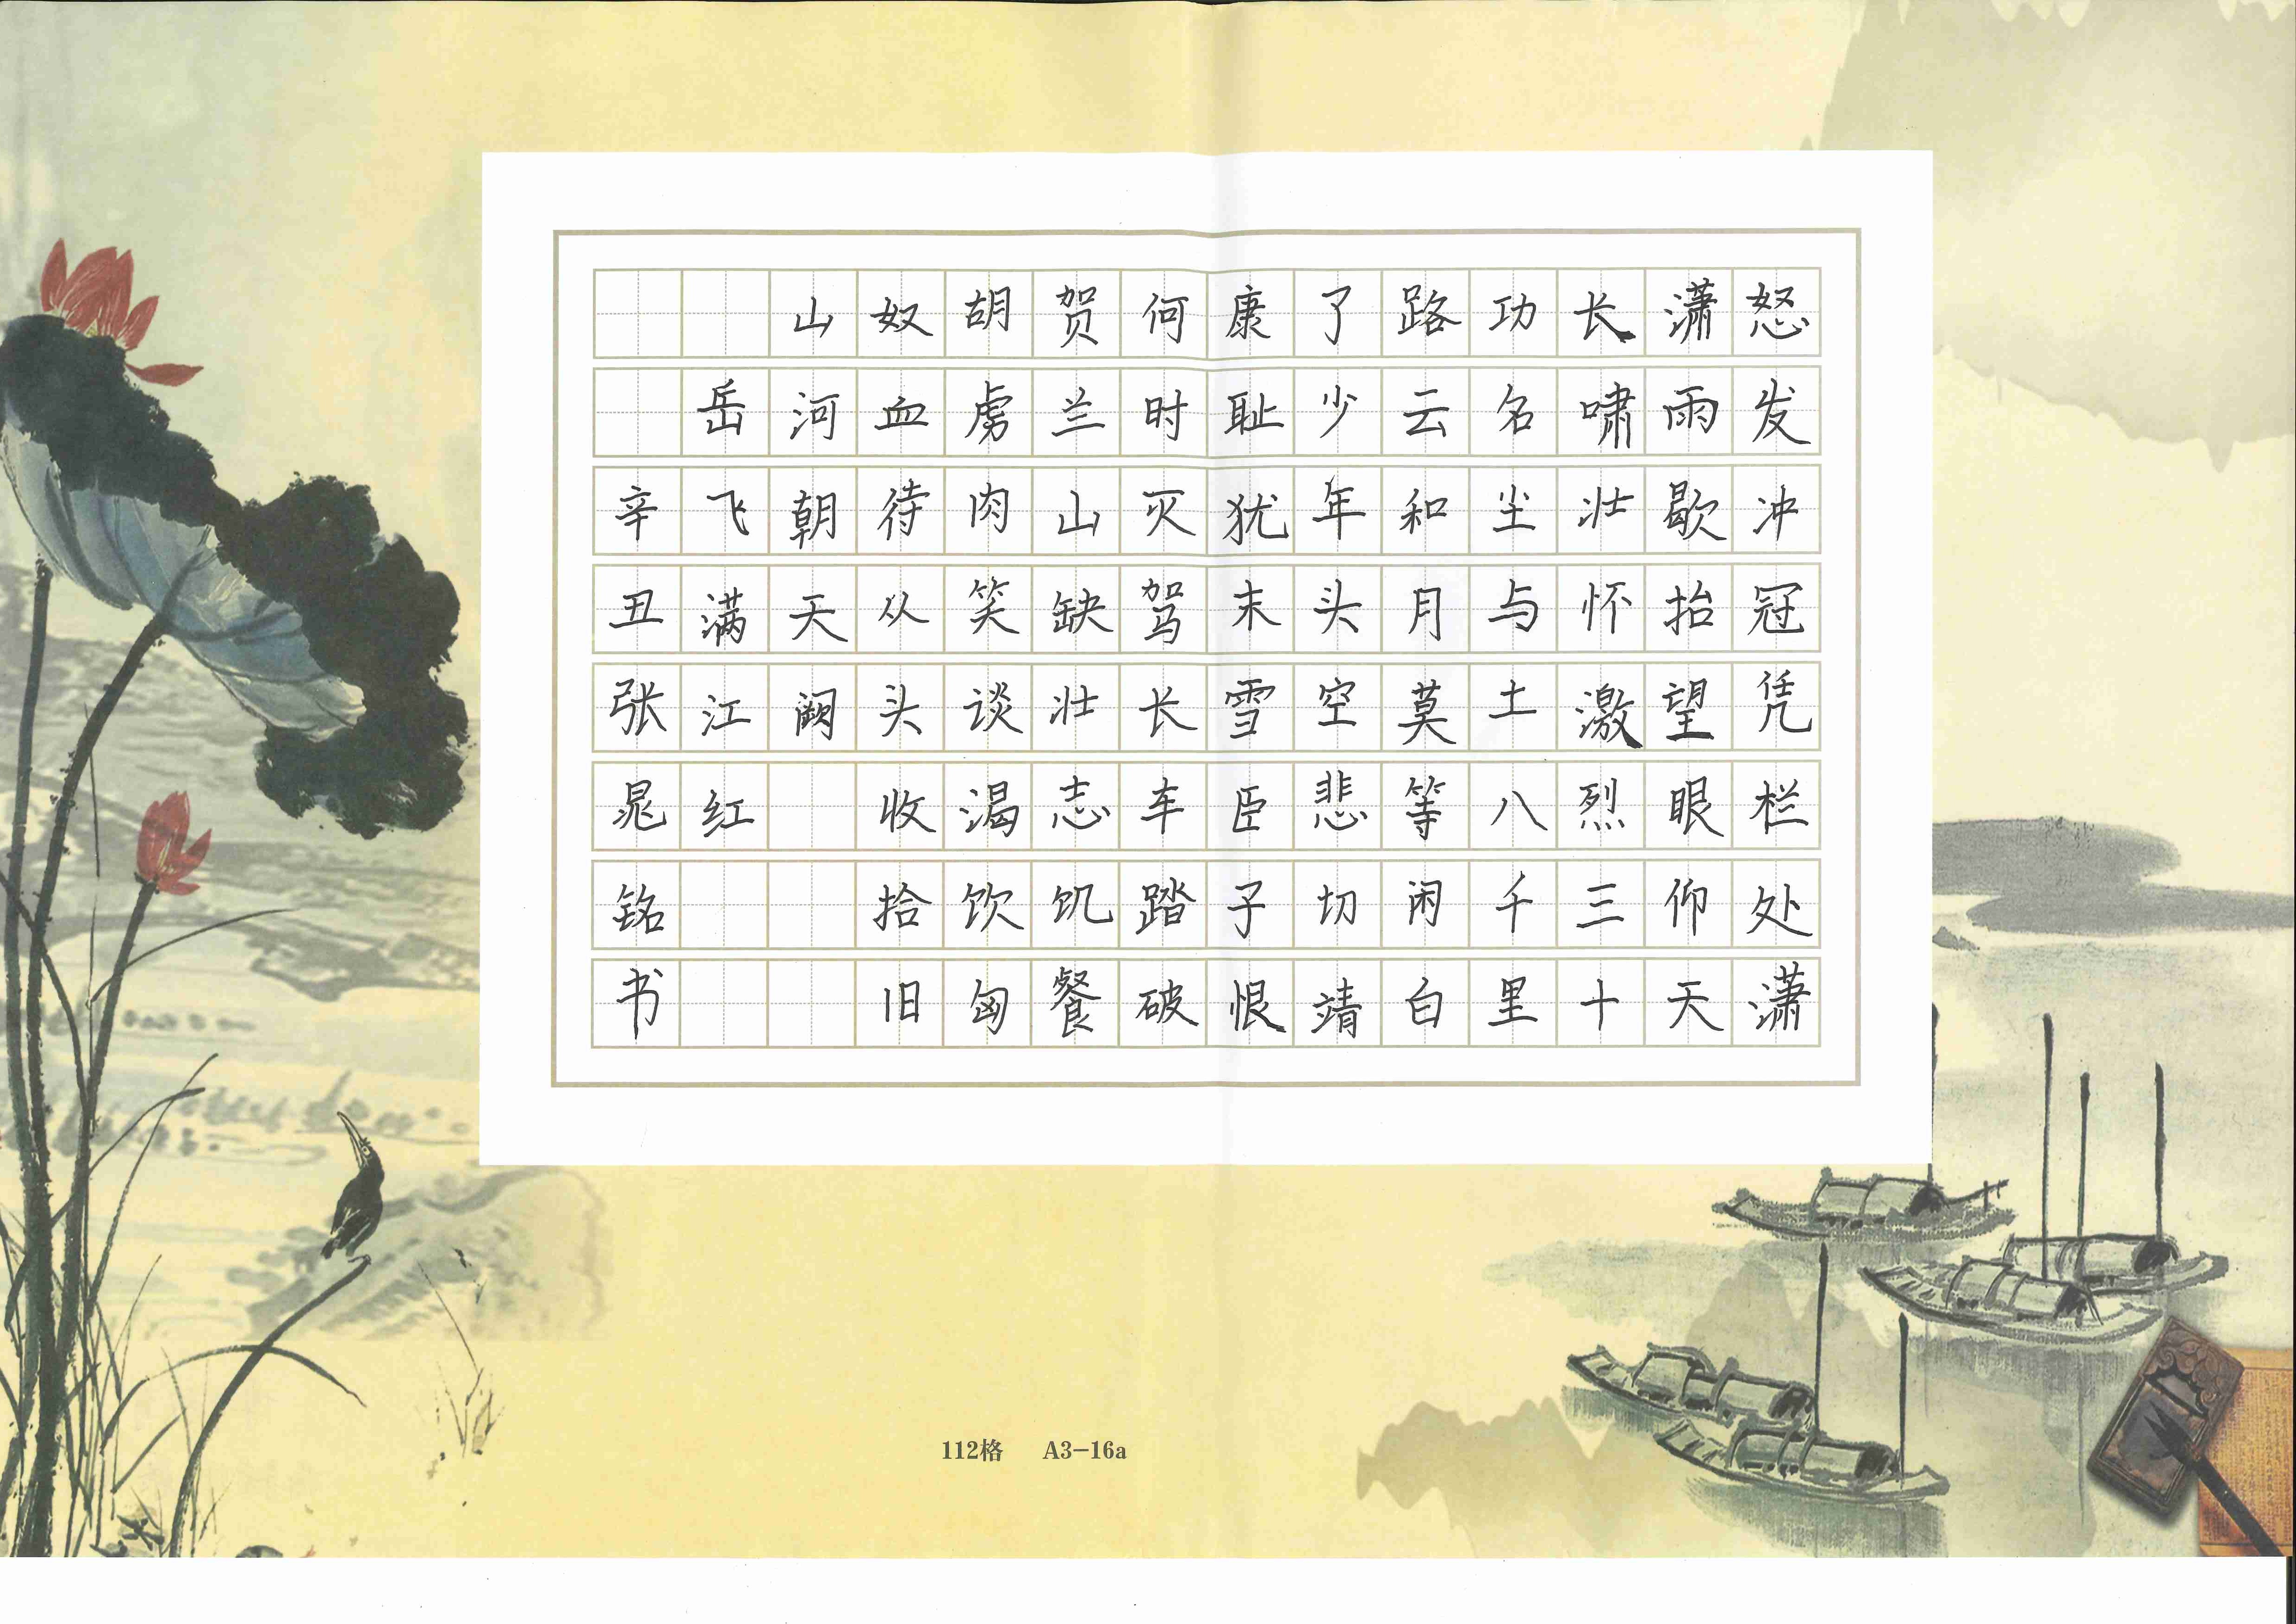 怒发冲冠凭栏处潇
潇雨歇抬望眼仰天
长啸壮怀激烈三十
功名尘与土八千里
路云和月莫等闲白
了少年头空悲切靖
康耻犹未雪臣子恨
何时灭驾长车踏破
贺兰山缺壮志饥餐
胡虏肉笑谈渴饮匈
奴血待从头收拾旧
山河朝天阙
岳飞满江红
辛丑张晁铭书
112格 A3-16a